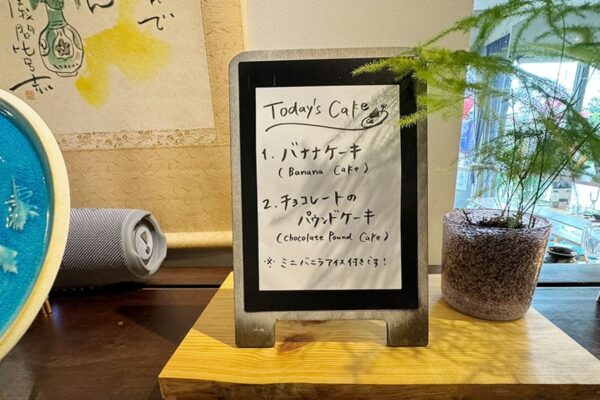 Today's Cake
1. バナナケーキ
(Banana Cake)
2. チョコレートの
パウンドケーキ
(Chocolate Pound Cake)
※ ミニバニラアイス付きです!